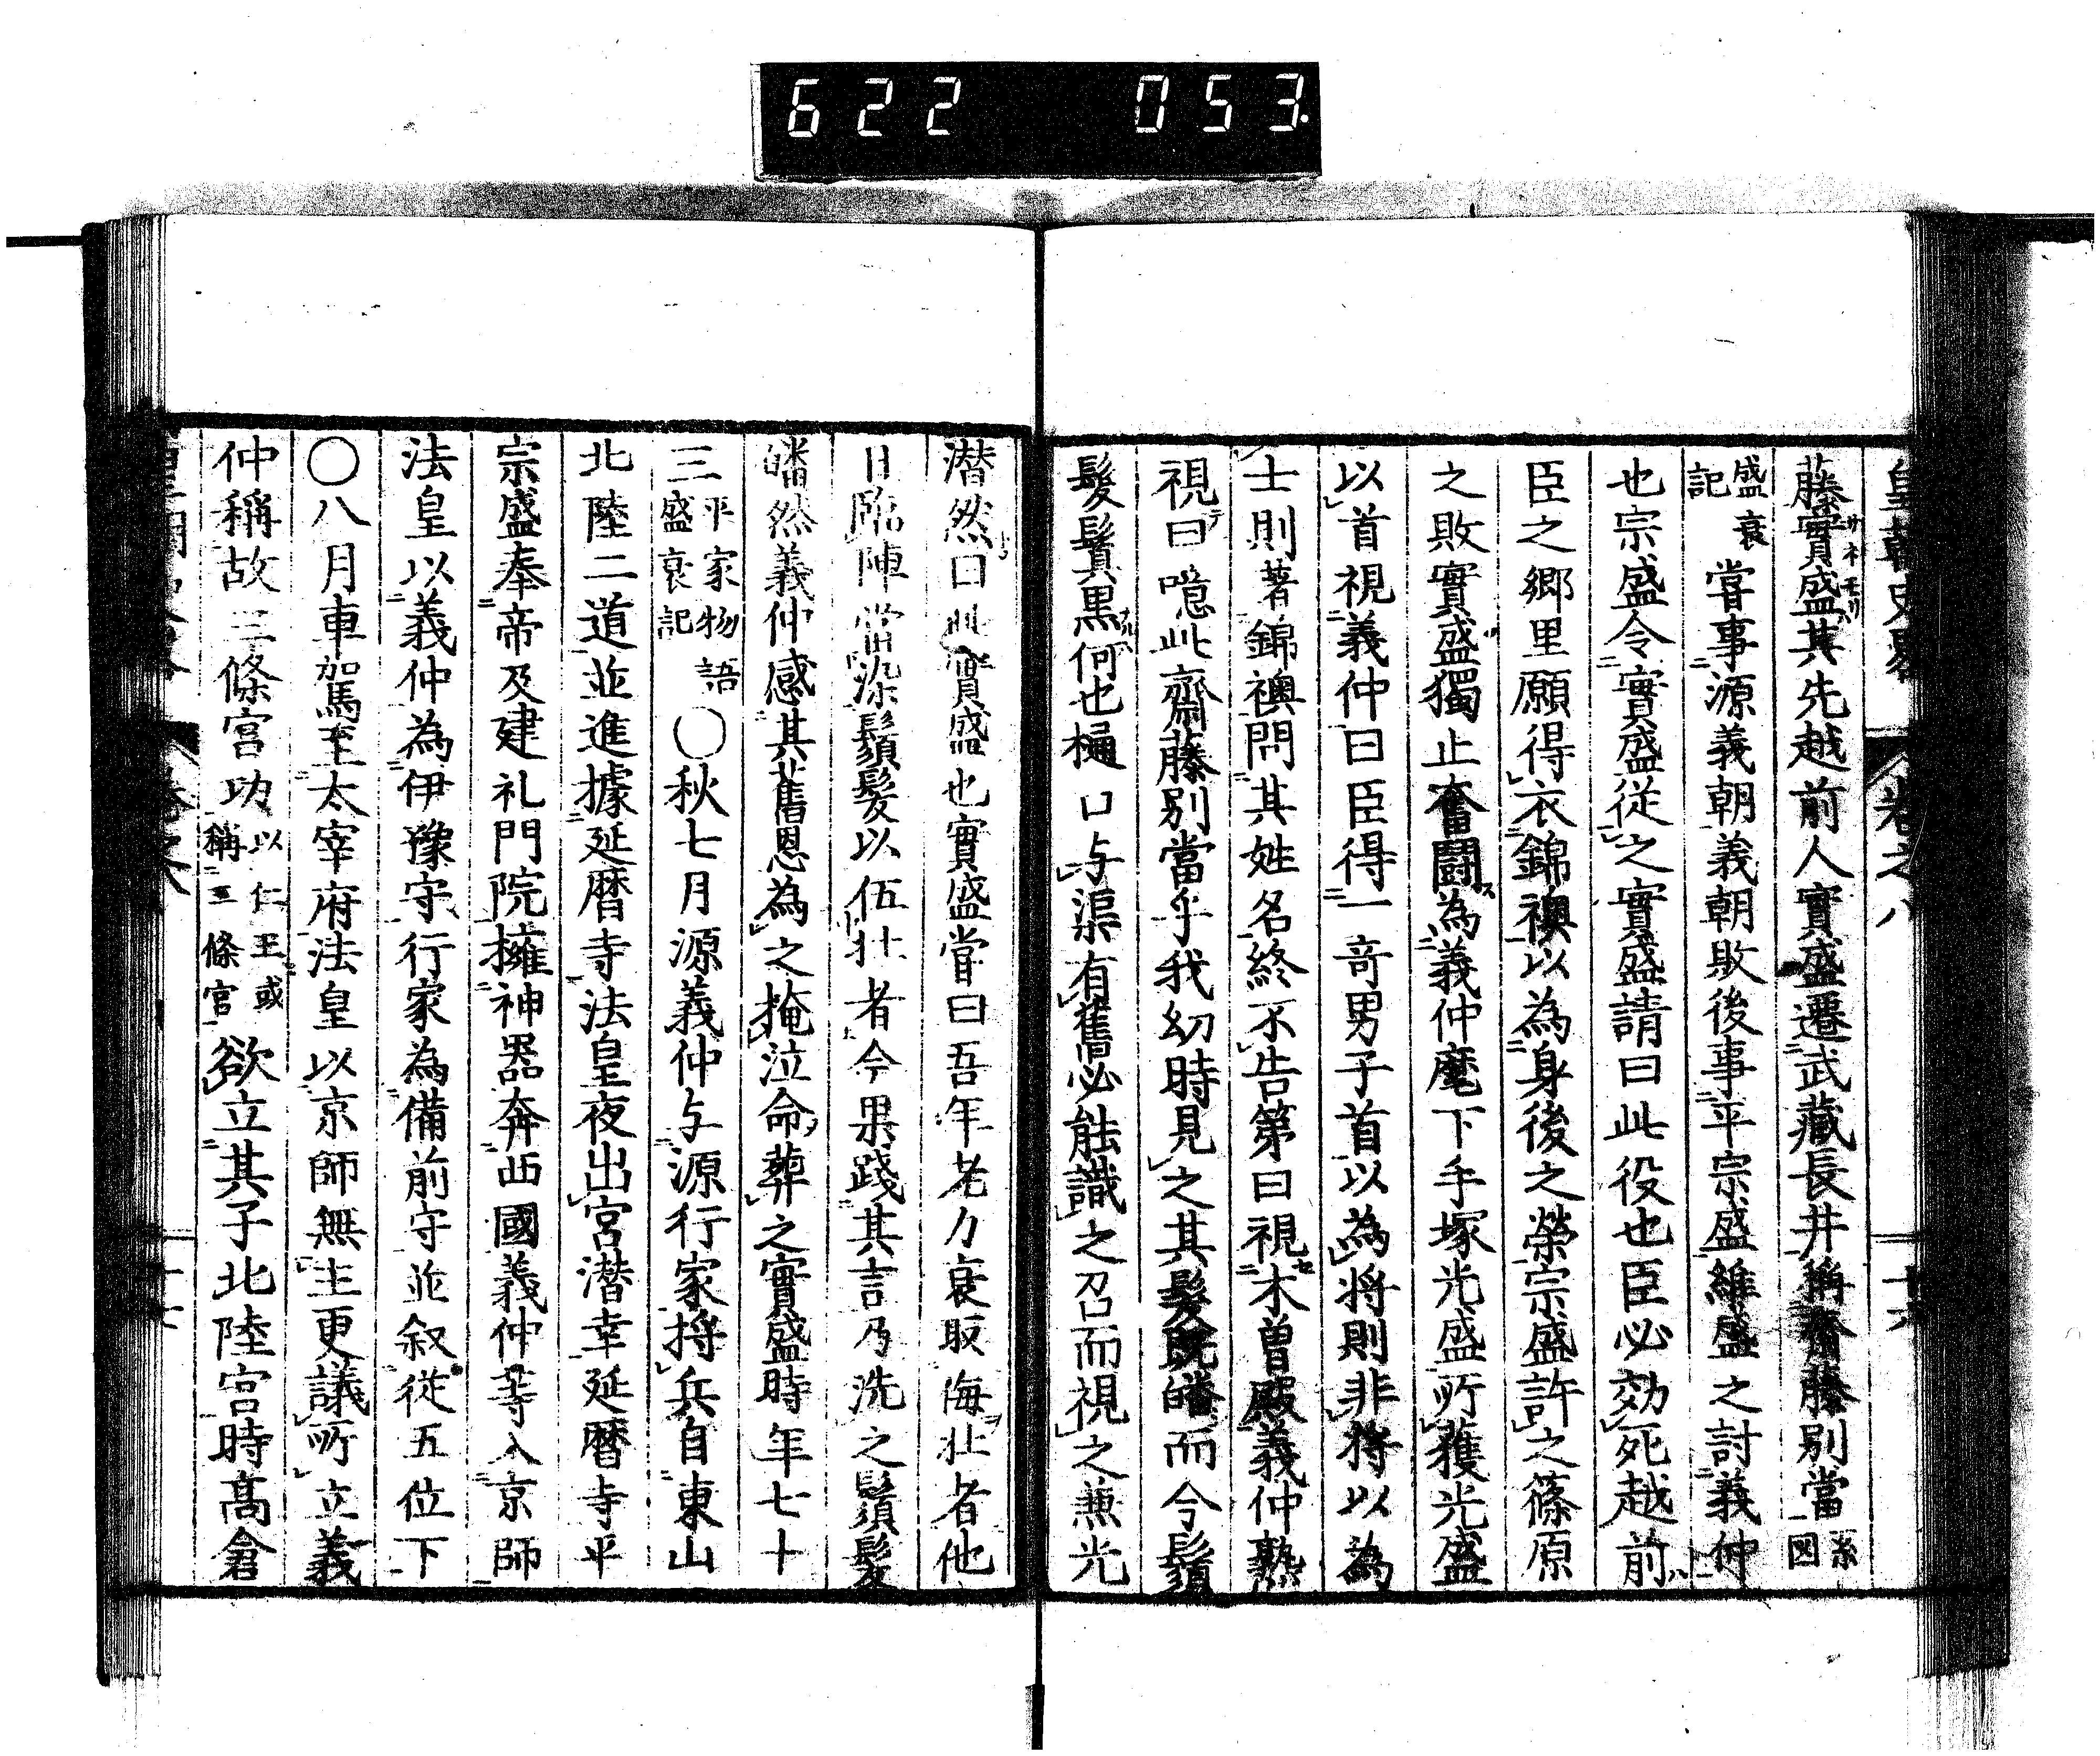 622 053.
皇朝史畧 卷之八 十六
藤實盛其先越前人實盛遷武藏長井稱齋藤別當系
圖
盛衰
記嘗事源義朝義朝敗後事平宗盛維盛之討義仲
也宗盛令實盛從之實盛請曰此役也臣必効死越前
臣之鄉里願得衣錦襖以為身後之榮宗盛許之篠原
之敗實盛獨止奮鬪為義仲麾下手塚光盛所獲光盛
以首視義仲曰臣得一奇男子首以為將則非將以為
士則著錦襖問其姓名終不告第曰視木曾殿義仲熟
視曰噫此齋藤別當乎我幼時見之其髮既皤而今鬚
髮鬒黒何也樋口与渠有舊必能識之召而視之兼光
潸然曰此實盛也實盛嘗曰吾年老力衰取侮壯者他
日臨陣當染鬚髮以伍壯者今果踐其言乃洗之鬚髮
皤然義仲感其舊恩為之掩泣命葬之實盛時年七十
三平家物語
盛衰記〇秋七月源義仲与源行家将兵自東山
北陸二道並進據延曆寺法皇夜出宮潛幸延曆寺平
宗盛奉帝及建礼門院擁神器奔西國義仲等入京師
法皇以義仲為伊豫守行家為備前守並叙從五位下
〇八月車駕至太宰府法皇以京師無主更議所立義
仲稱故三條宮功以仁王或
稱三條宮欲立其子北陸宮時髙倉